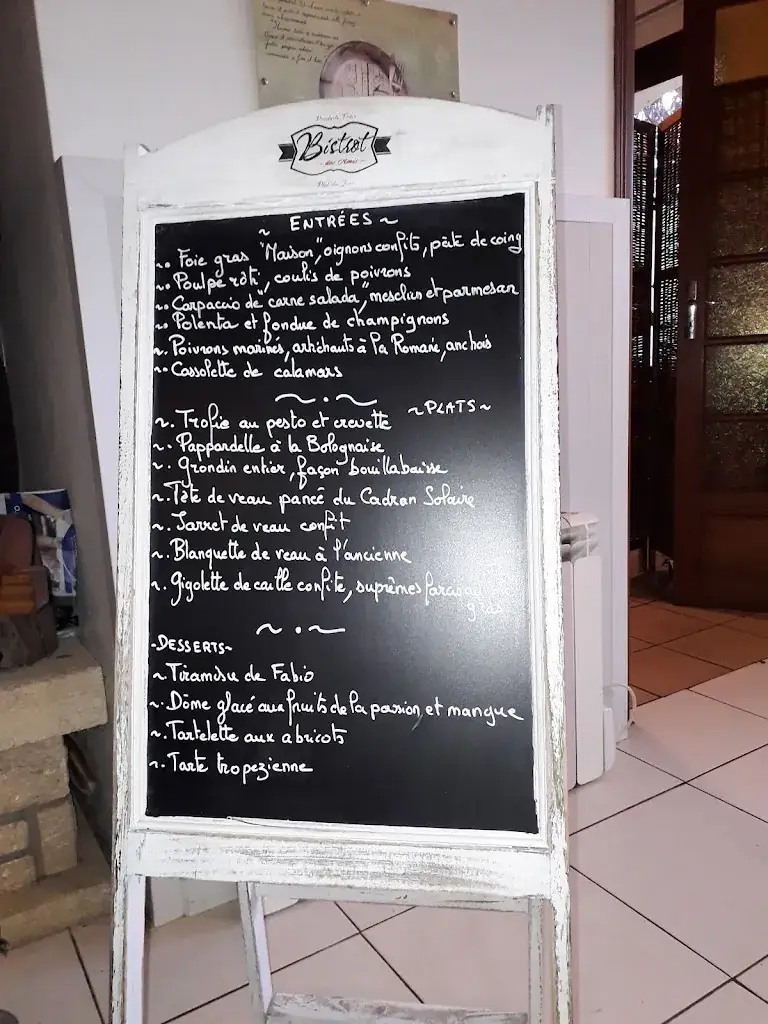 Bistrot
~ ENTRÉES ~
~. Foie gras "Maison", oignons confits, pâte de coing
~. Poulpe rôti, coulis de poivrons
~. Carpaccio de "carne salada", mesclun et parmesan
~. Polenta et fondue de champignons
~. Poivrons marinés, artichauts à la Romane, anchois
~. Cassolette de calamars
~PLATS~
~. Trofie au pesto et crevette
~. Pappardelle à la Bolognaise
~. Grondin entier, façon bouillabaisse
~. Tête de veau panée du Cadran Solaire
~. Jarret de veau confit
~. Blanquette de veau à l'ancienne
~. Gigolette de caille confite, suprêmes farcis
gras
-DESSERTS~
~ Tiramisu de Fabio
~. Dôme glacé aux fruits de la passion et mangue
~. Tartelette aux abricots
~. Tarte tropezienne